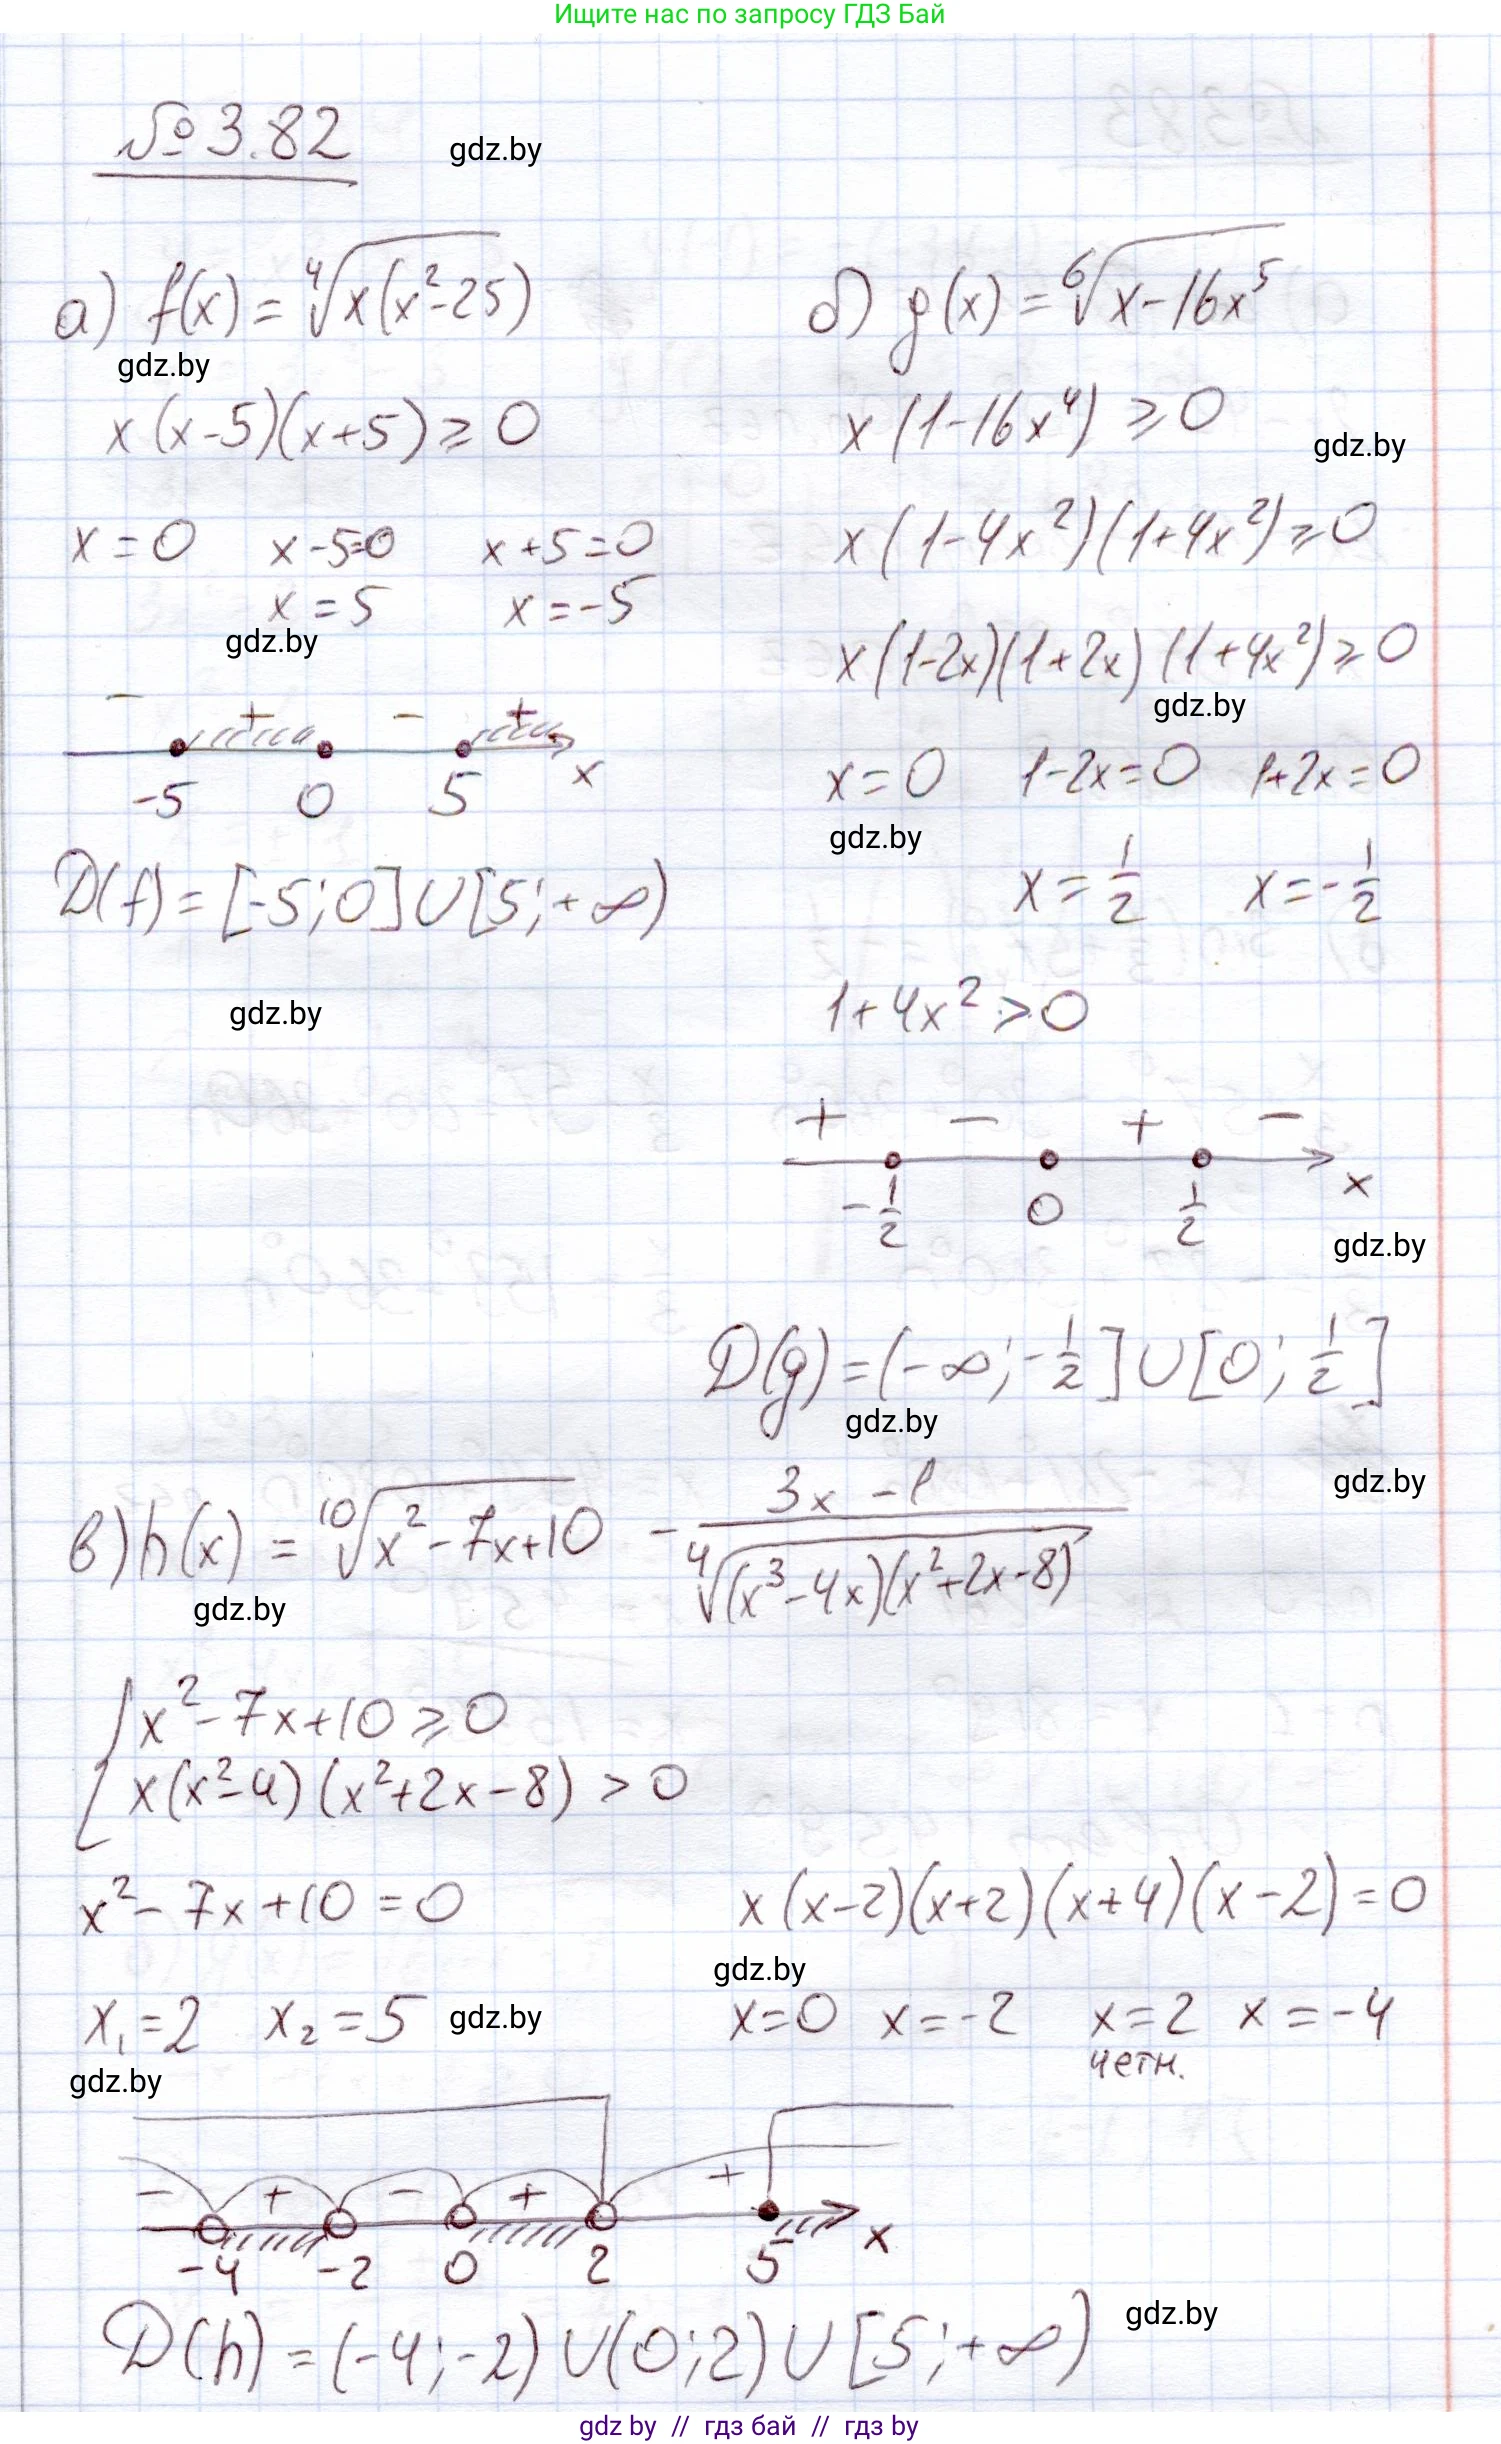 Ищите нас по запросу ГДЗ Бай
№ 3.82
gdz.by
а) f(x) = ⁴√x(x²-25)
gdz.by
x(x-5)(x+5) ⩾ 0
x = 0 x-5=0 x+5=0
x = 5 x = -5
gdz.by
- + - +
-5 0 5 x
D(f) = [-5; 0] ∪ [5; +∞)
gdz.by
б) g(x) = ⁶√x-16x⁵
x(1-16x⁴) ⩾ 0
gdz.by
x(1-4x²)(1+4x²) ⩾ 0
x(1-2x)(1+2x)(1+4x²) ⩾ 0
gdz.by
x = 0 1-2x = 0 1+2x = 0
gdz.by
x = 1/2 x = -1/2
1+4x² > 0
+ - + -
-1/2 0 1/2 x
gdz.by
D(g) = (-∞; -1/2] ∪ [0; 1/2]
gdz.by
gdz.by
в) h(x) = ¹⁰√x²-7x+10 - (3x-1)/⁴√(x³-4x)(x²+2x-8)
gdz.by
{ x²-7x+10 ⩾ 0
x(x²-4)(x²+2x-8) > 0
x²-7x+10 = 0 x(x-2)(x+2)(x+4)(x-2) = 0
gdz.by
x₁ = 2 x₂ = 5 gdz.by x = 0 x = -2 x = 2 x = -4
четн.
gdz.by
- + - + +
-4 -2 0 2 5 x
D(h) = (-4; -2) ∪ (0; 2) ∪ [5; +∞)
gdz.by
gdz by // гдз бай // гдз by